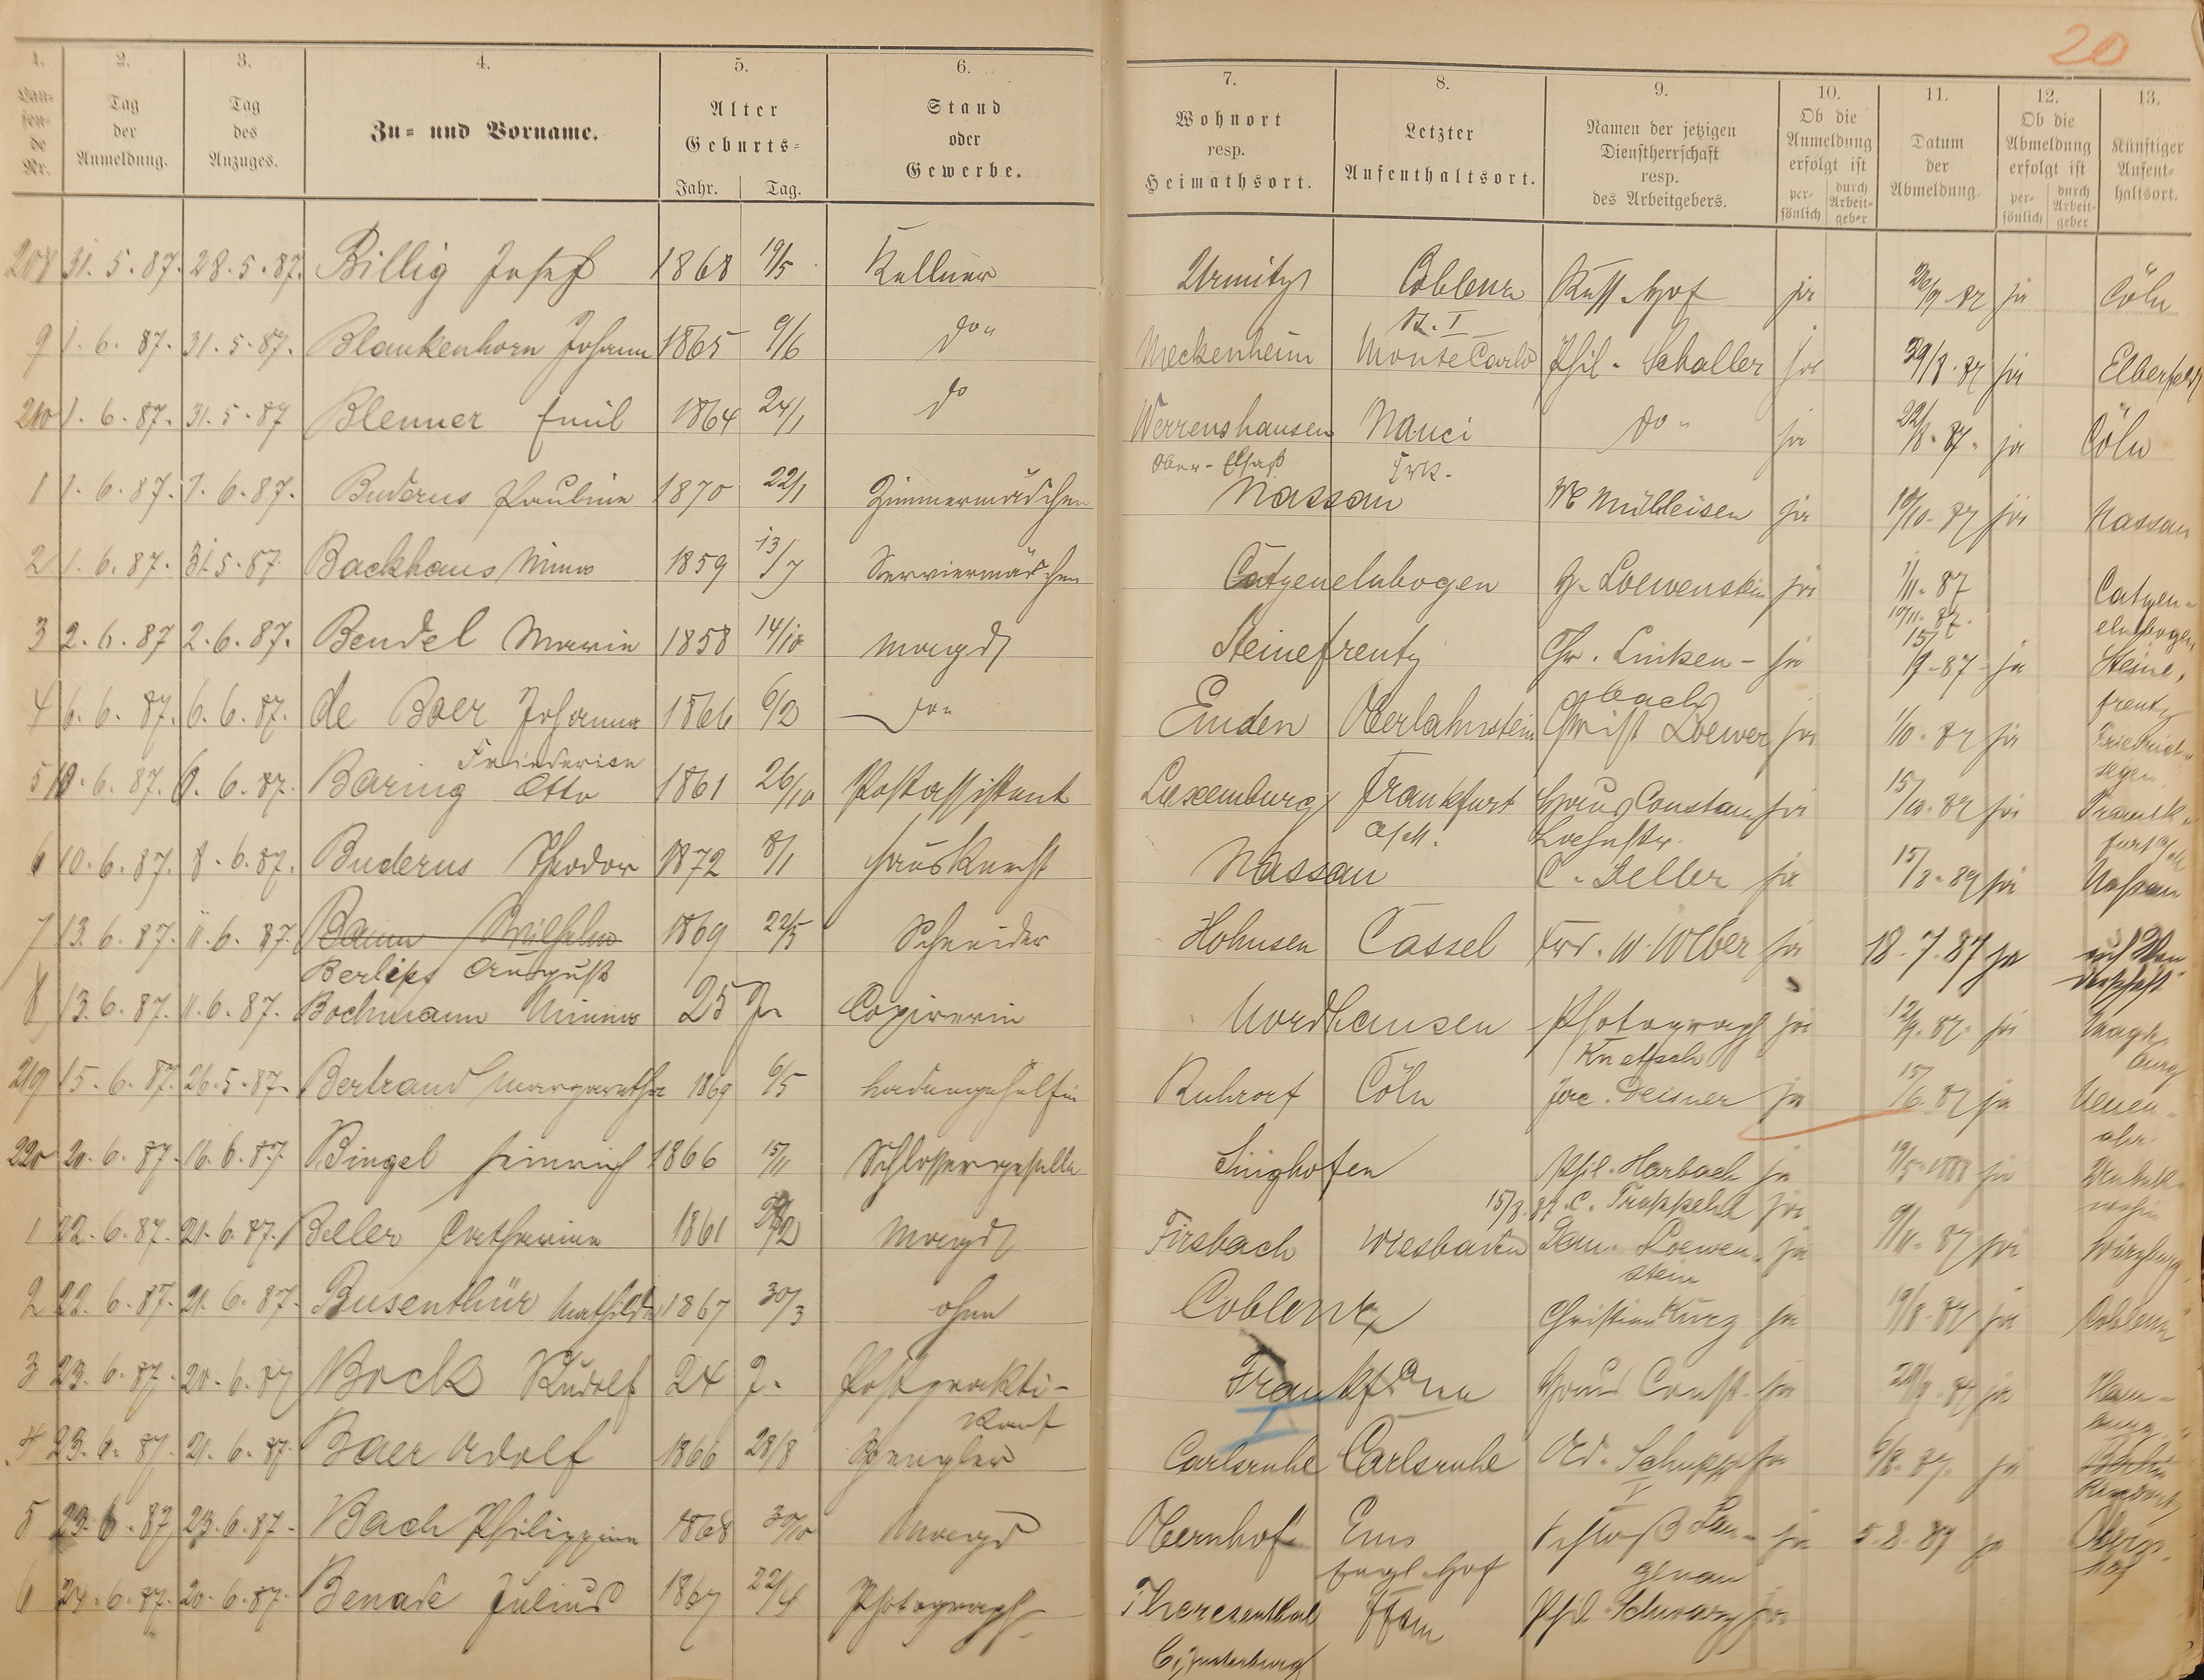 20
1. 2. 3. 4. 5. 6. 7. 8. 9. 10. 11. 12. 13.
Laufende Nr.
Tag der Anmeldung.
Tag des Anzuges.
Zu- und Vorname.
Alter Geburts- Jahr. Tag.
Stand oder Gewerbe.
Wohnort resp. Heimathsort.
Letzter Aufenthaltsort.
Namen der jetzigen Dienstherrschaft resp. des Arbeitgebers.
Ob die Anmeldung erfolgt ist persönlich durch Arbeitgeber
Datum der Abmeldung.
Ob die Abmeldung erfolgt ist persönlich durch Arbeitgeber
Künftiger Aufenthaltsort.
208 31.5.87. 28.5.87. Billig Josef 1868 19/5 Kellner Urmitz Coblenz Russ. Hof ja 26/9 87 ja Cöln
9 1.6.87. 31.5.87. Blankenhorn Johann 1865 9/6 do" Meckenheim Monte Carlo Phil. Schaller ja 29/8.87 ja Elberfeld
210 1.6.87. 31.5.87 Blenner Emil 1864 24/1 do Werrenshausen Nanci do" ja 22/8.87. ja Cöln
Ober-Elsaß Frk.
1 1.6.87. 1.6.87. Buderus Pauline 1870 22/1 Zimmermädchen Nassau We Mülleisen ja 10/10.87 ja Nassau
2 1.6.87. 31.5.87. Backhaus Minna 1859 13/7 Serviermädchen Catzenelnbogen H. Loewenstein ja 1/11.87 Catzen-
10/11.87. elnbogen
3 2.6.87 2.6.87. Bendel Maria 1858 14/10 Magd Steinefrentz Chr. Linken- ja 15/9.87 ja Steine-
bach frentz
4 6.6.87. 6.6.87. de Boer Johanna 1866 6/2 do" Emden Oberlahnstein Christ Loewer ja 1/10.87 ja Friedrich-
Friederica segen
5 6.87. 6.87. Baring Otto 1861 26/10 Postassistent Luxemburg Frankfurt Haus Constanz ja 15/10.87 ja Frank-
a/M. furt a/M
6 10.6.87. 8.6.87. Buderus Theodor 1872 8/1 Hausknecht Nassau C. Deller ja 15/8.89 ja Nassau
7 13.6.87. 11.6.87. Baum Wilhelm 1869 22/5 Schneider Hohnsen Cassel Frd. W. Weber ja 18.7.87 ja auf Wan-
Berlips August derschaft
8 13.6.87. 11.6.87. Bochmann Minna 25 J. Copirerin Nordhausen Photograph ja 12/9.87. ja Magde-
burg
219 15.6.87. 26.5.87. Bertrand Margaretha 1869 6/5 Ladengehülfin Ruhrort Cöln Jac. Deisner ja 15/6.87 ja Neuen-
ahr.
220 20.6.87. 16.6.87. Bingel Heinrich 1866 15/11 Schlossergeselle Singhofen Phil. Harbach ja 19/5.1888 ja Unbek.
15/8.87 C. ja wohin
1 22.6.87. 21.6.87. Beller Catharina 1861 Magd Firsbach Wiesbaden Sam. Loewen- ja 9/11.87 ja Würzburg
stein
2 22.6.87. 21.6.87. Busenthür Mathilde 1867 30/3 ohne Coblenz Christian Kurz ja 19/8.87 ja Coblenz
3 23.6.87. 20.6.87 Bock Rudolf 24 J. Postprakti- Frankf a/M Haus Const. ja 29/9.87 ja Ham-
kant burg
4 23.6.87. 21.6.87. Baer Adolf 1866 28/8 Spengler Carlsruhe Carlsruhe Ad. Schupp ja 6/8.87. ja Berlin
5 23.6.87 23.6.87. Bach Philippine 1868 30/10 Magd Obernhof Ems Schloß Lan- ja 5.8.87 ja Obern-
Engl. Hof genau hof
6 24.6.87. 20.6.87. Benade Julius 1867 22/4 Photograph Theresenthal Ffam Phil Schwarz ja